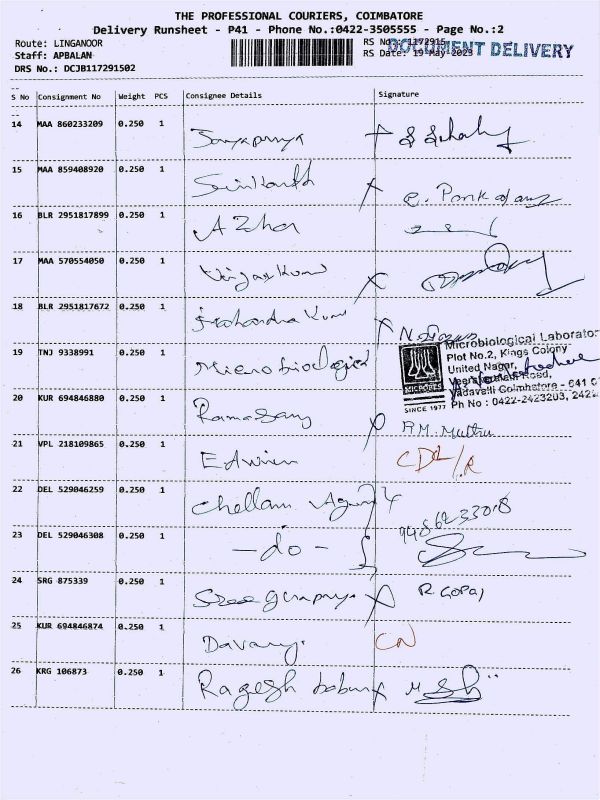 THE PROFESSIONAL COURIERS, COIMBATORE
Delivery Runsheet - P41 - Phone No.:0422-3505555 - Page No.:2
Route: LINGANOOR
RS No.: 1172915
DOCUMENT DELIVERY
Staff: APBALAN
RS Date: 19 May 2023
DRS No.: DCJB117291502
S No Consignment No Weight PCS Consignee Details Signature
14 MAA 860233209 0.250 1 Jayapriya
15 MAA 859408920 0.250 1 Srinkanth
16 BLR 2951817899 0.250 1 Azhar
17 MAA 570554050 0.250 1 Vijaykumar
18 BLR 2951817672 0.250 1 Kumar
19 TNJ 9338991 0.250 1 Microbiological
Microbiological Laborator
Plot No.2, Kings Colony
United Nagar,
Road,
Vadavalli Coimbatore - 641 0
Ph No : 0422-2423203, 2422
SINCE 1977
20 KUR 694846880 0.250 1 Ramasamy R.M. Muthu
21 VPL 218109865 0.250 1 Edwin CDL/R
22 DEL 529046259 0.250 1 Chellam
23 DEL 529046308 0.250 1 -do-
24 SRG 875339 0.250 1 R. GOPAJ
25 KUR 694846874 0.250 1 CN
26 KRG 106873 0.250 1 Ragesh babu